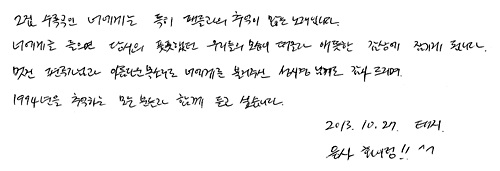 2집 수록곡인 너에게는 특히 팬들과의 추억이 많은 노래입니다.
너에게를 들으면 당신의 풋풋했던 우리들의 모습이 떠올라 애틋한 감상에 잠기게 됩니다.
멋진 편곡과 아름다운 목소리로 너에게를 불러주신 성시경님께 감사드리며,
1994년을 추억하는 모든 분들과 함께 듣고 싶습니다.
2013. 10. 27. 태지.
응사 화이팅!! ^^